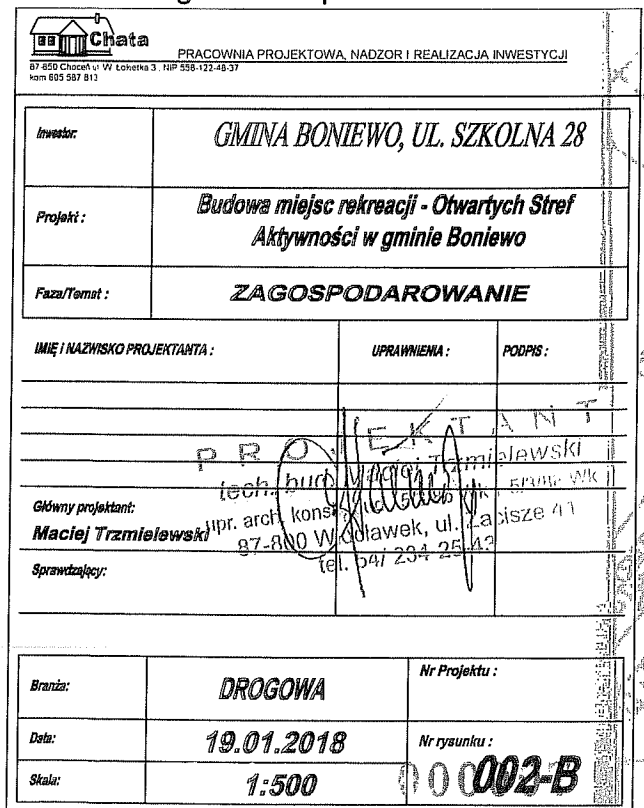 Chata
PRACOWNIA PROJEKTOWA, NADZOR I REALIZACJA INWESTYCJI
87-850 Choceń ul W Łokietka 3 , NIP 558-122-48-37
kom 605 587 813
Inwestor:
GMINA BONIEWO, UL. SZKOLNA 28
Projekt :
Budowa miejsc rekreacji - Otwartych Stref
Aktywności w gminie Boniewo
Faza/Temat :
ZAGOSPODAROWANIE
IMIĘ I NAZWISKO PROJEKTANTA :
UPRAWNIENIA :
PODPIS :
PROJEKTANT
tech. bud. Maciej Trzmielewski
upr. arch. konst.
87-800 Włocławek, ul. Zacisze 41
tel. 54/ 234-25-43
Główny projektant:
Maciej Trzmielewski
Sprawdzający:
Branża:
DROGOWA
Nr Projektu :
Data:
19.01.2018
Nr rysunku :
002-B
Skala:
1:500